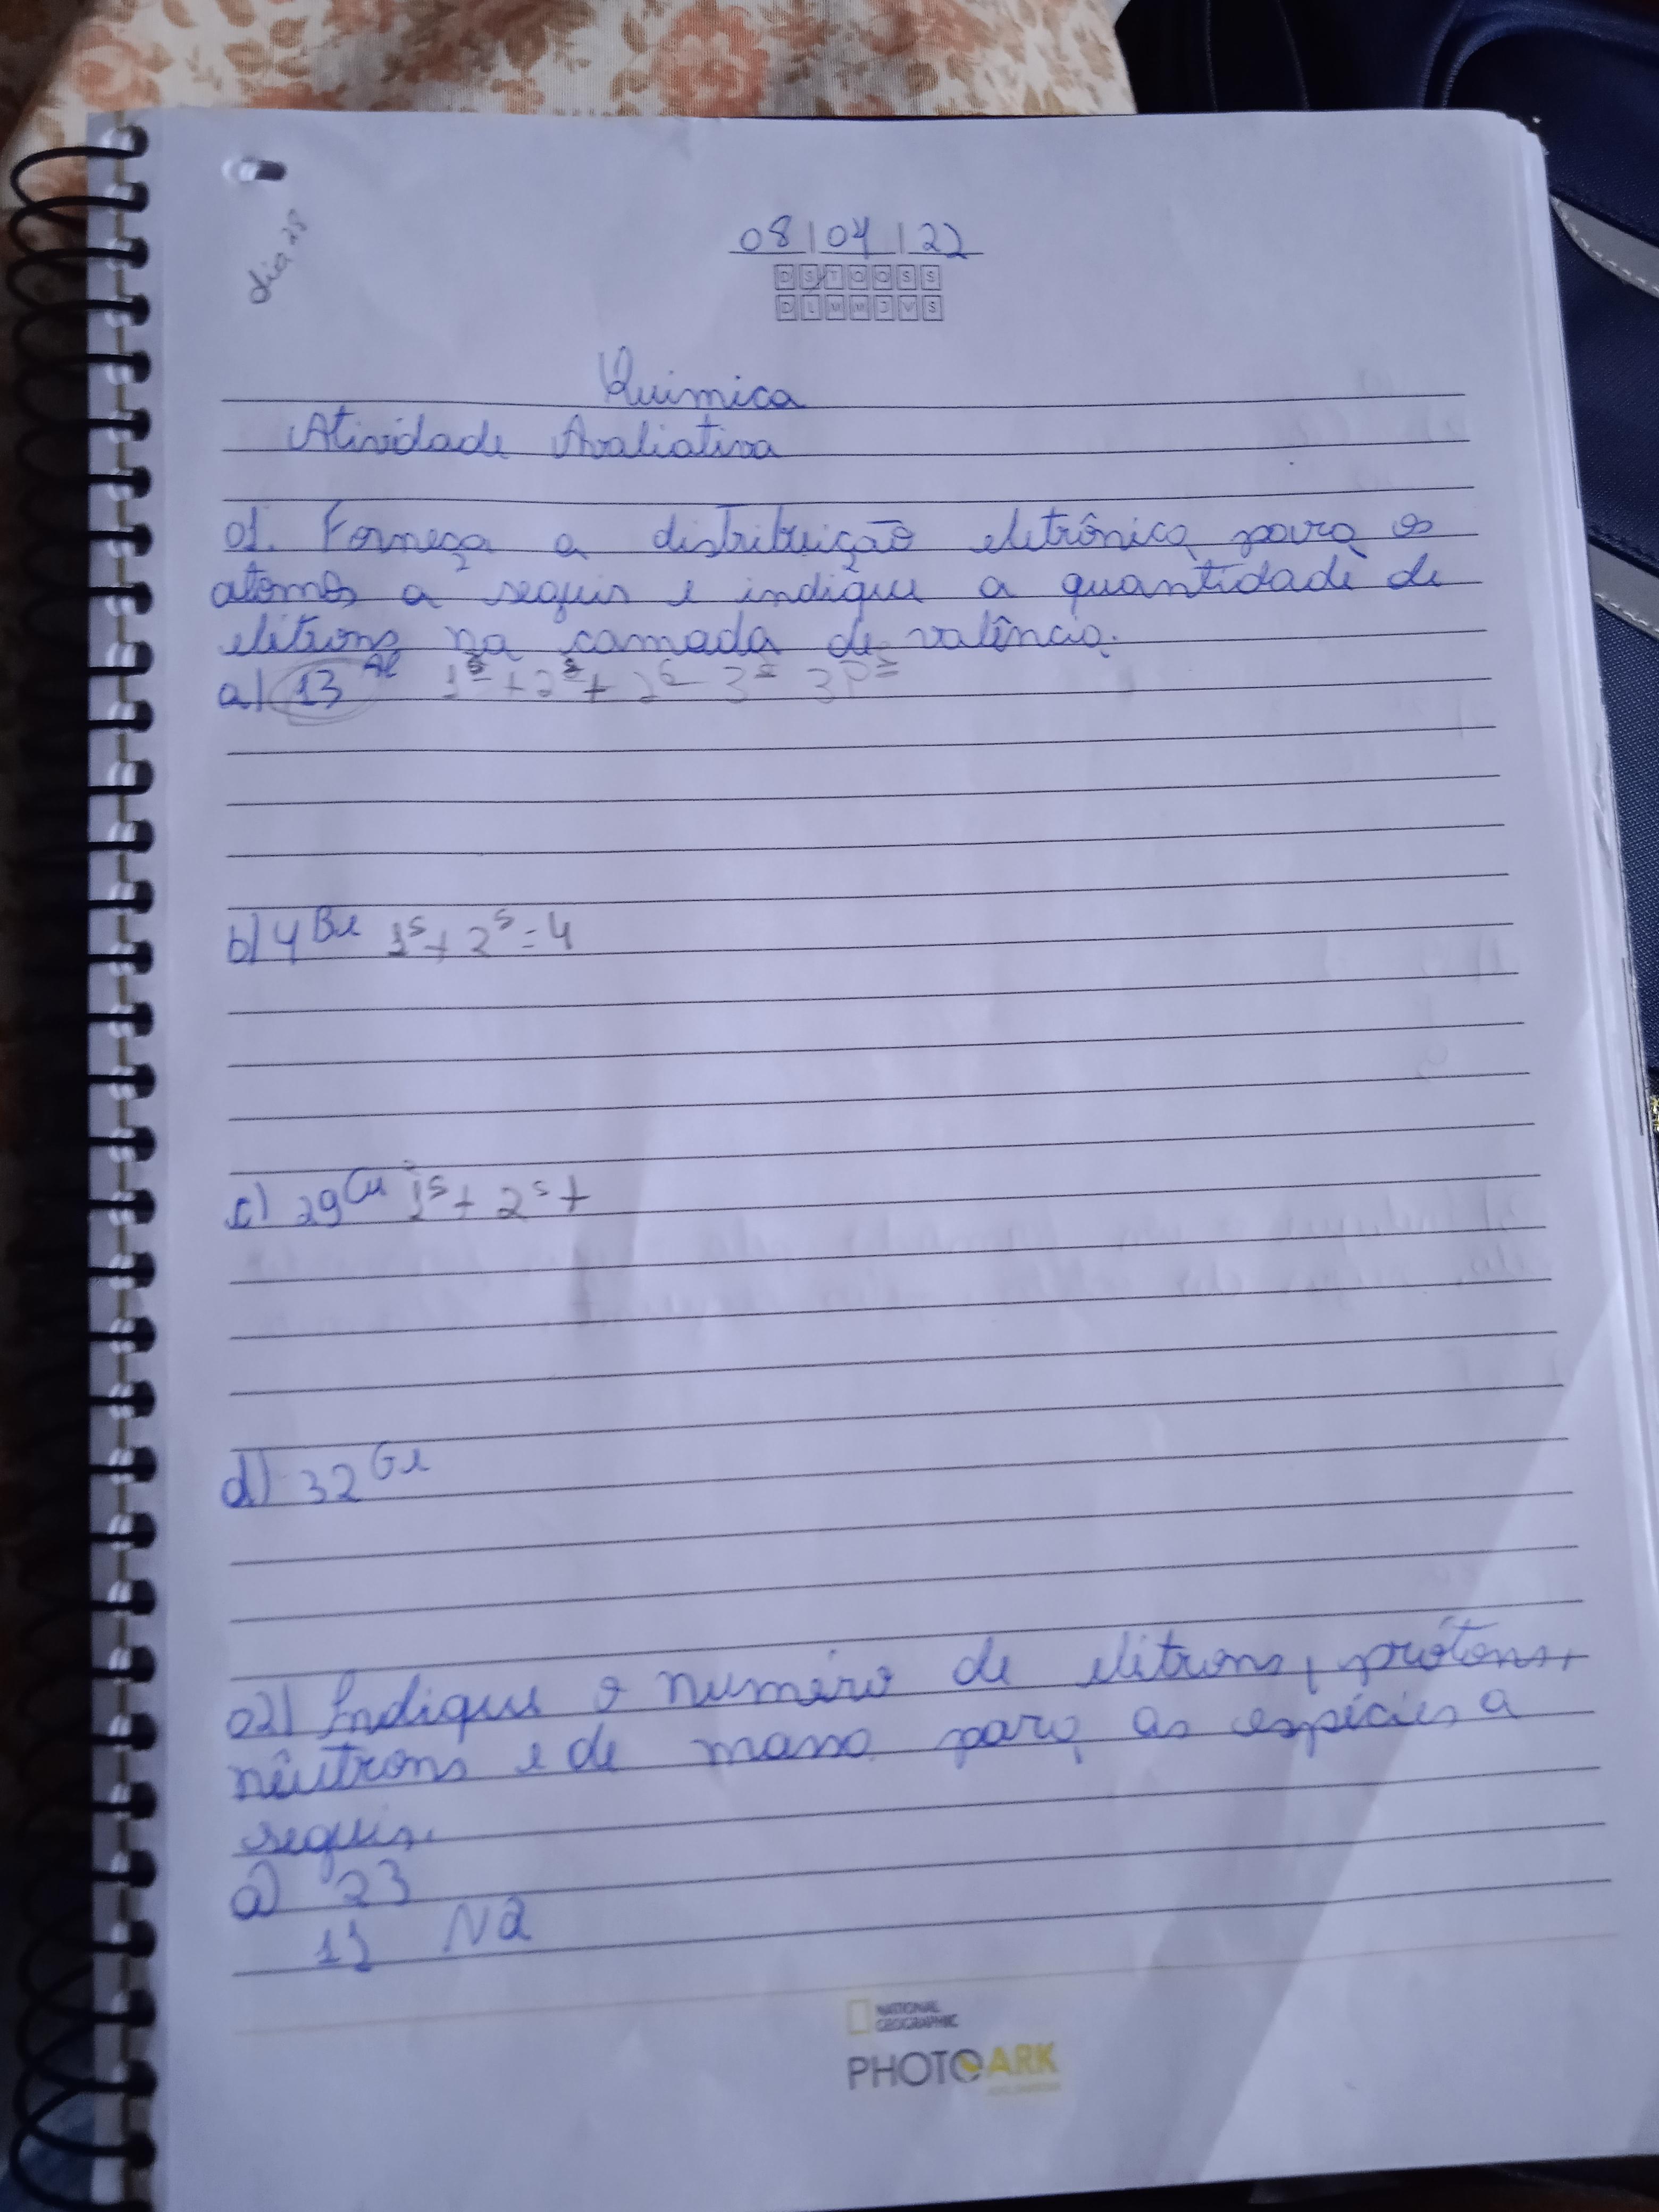 dia 28
08 | 04 | 22
D S T Q Q S S
D L M M J V S
Química
Atividade Avaliativa
01. Forneça a distribuição eletrônica para os
atomos a seguir e indique a quantidade de
elétrons na camada de valência.
a) 13 Al 1s + 2s + 2s 3s 3p
b) 4 Be 1s + 2s = 4
c) 29 Cu 1s + 2s +
d) 32 Ge
02) Indique o numéro de elétrons, prótons,
nêutrons e de massa para as espécies a
seguir.
a) 23
11 Na
NATIONAL
GEOGRAPHIC
PHOTO ARK